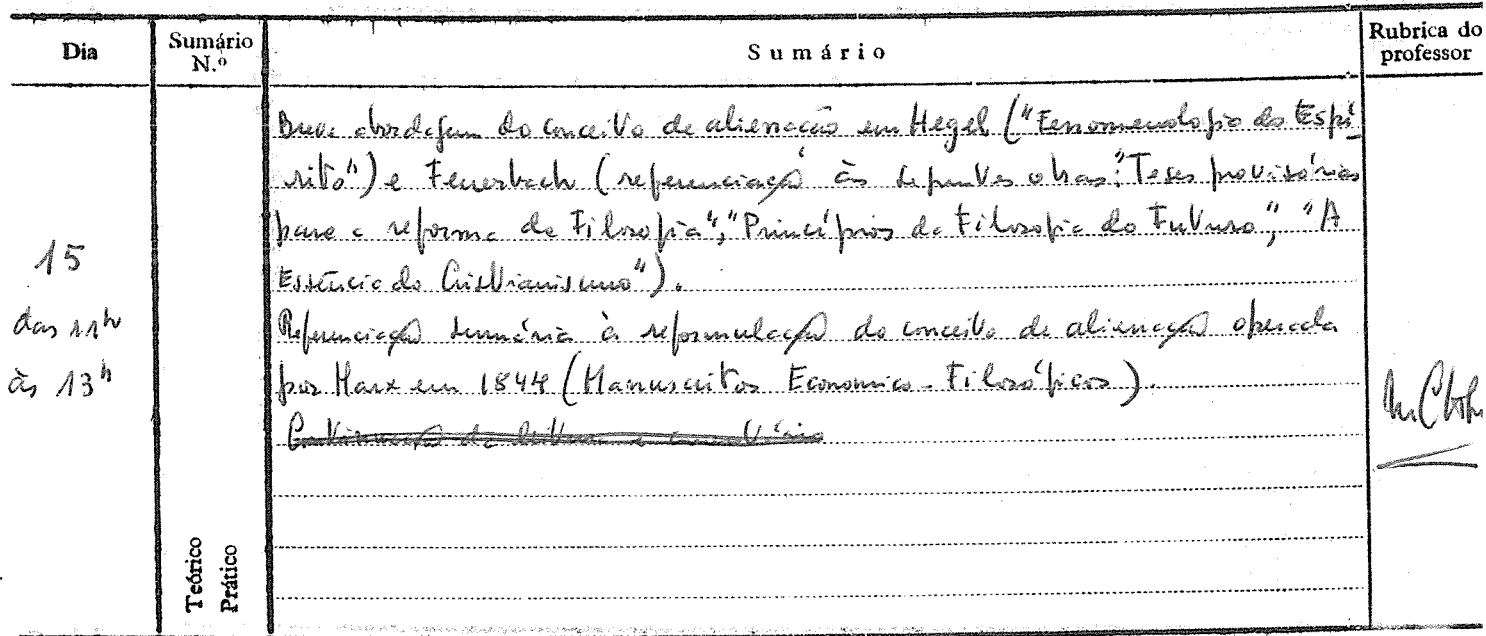 Dia
Sumário N.º
Sumário
Rubrica do professor
15
das 11h
às 13h
Breve abordagem do conceito de alienação em Hegel ("Fenomenologia do Espí-
rito") e Feuerbach (referenciação às seguintes obras: "Teses provisórias
para a reforma da Filosofia", "Princípios da Filosofia do Futuro", "A
Essência do Cristianismo").
Referenciação sumária à reformulação do conceito de alienação operada
por Marx em 1844 (Manuscritos Economico-Filosóficos).
Continuação da leitura e
Teórico
Prático